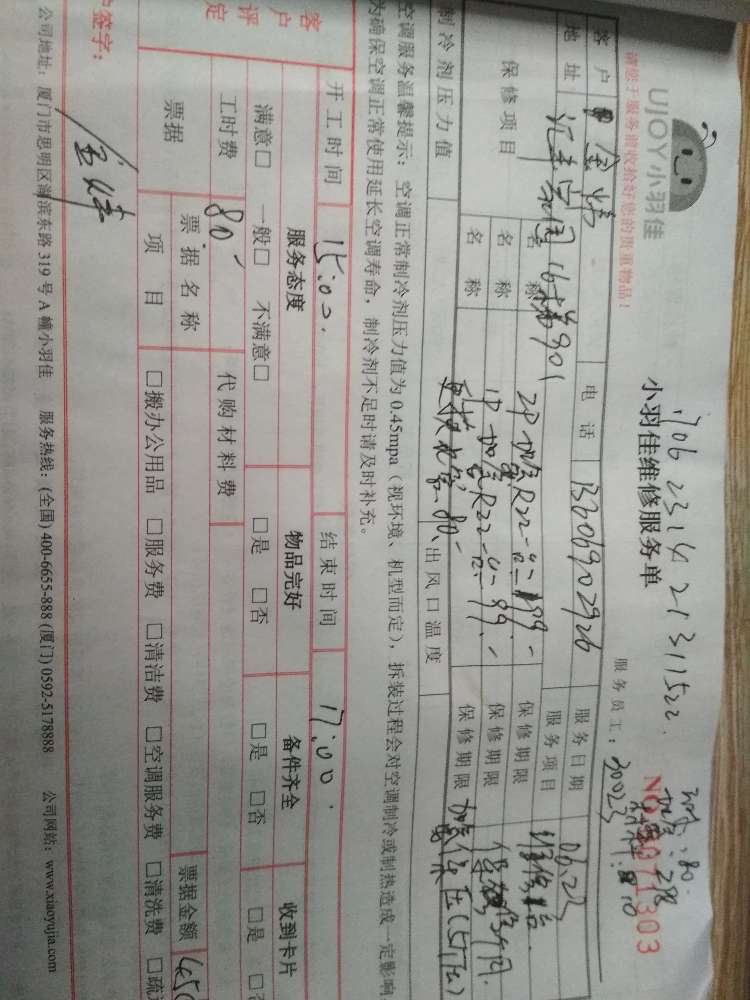 UJOY小羽佳
请您于服务前收拾好您的贵重物品!
1706 231421311522.
小羽佳维修服务单
服务员工: 30023
NO 3071303
:80.
加氨:298
:10
客户
电话 13606902926
服务日期 06.23
地址 16楼901
服务项目
保修项目
名称 2P加氨R22-
199.-
保修期限
名称 1P加氨R22-
99.-
保修期限
名称 更换 80-
保修期限
制冷剂压力值
出风口温度
空调服务温馨提示: 空调正常制冷剂压力值为0.45mpa(视环境、机型而定), 拆装过程会对空调制冷或制热造成一定影响
为确保空调正常使用延长空调寿命, 制冷剂不足时请及时补充。
开工时间 15:00.
结束时间 17:00.
客户评定
服务态度 物品完好 备件齐全 收到卡片
满意□ 一般□ 不满意□ □是 □否 □是 □否 □是
工时费 80- 代购材料费
票据 票据名称 票据金额 450
项目 □搬办公用品 □服务费 □清洁费 □空调服务费 □清洗费 □疏
户签字:
公司地址: 厦门市思明区湖滨东路319号A幢小羽佳 服务热线: (全国) 400-6655-888 (厦门) 0592-5178888 公司网站: www.xiaoyujia.com